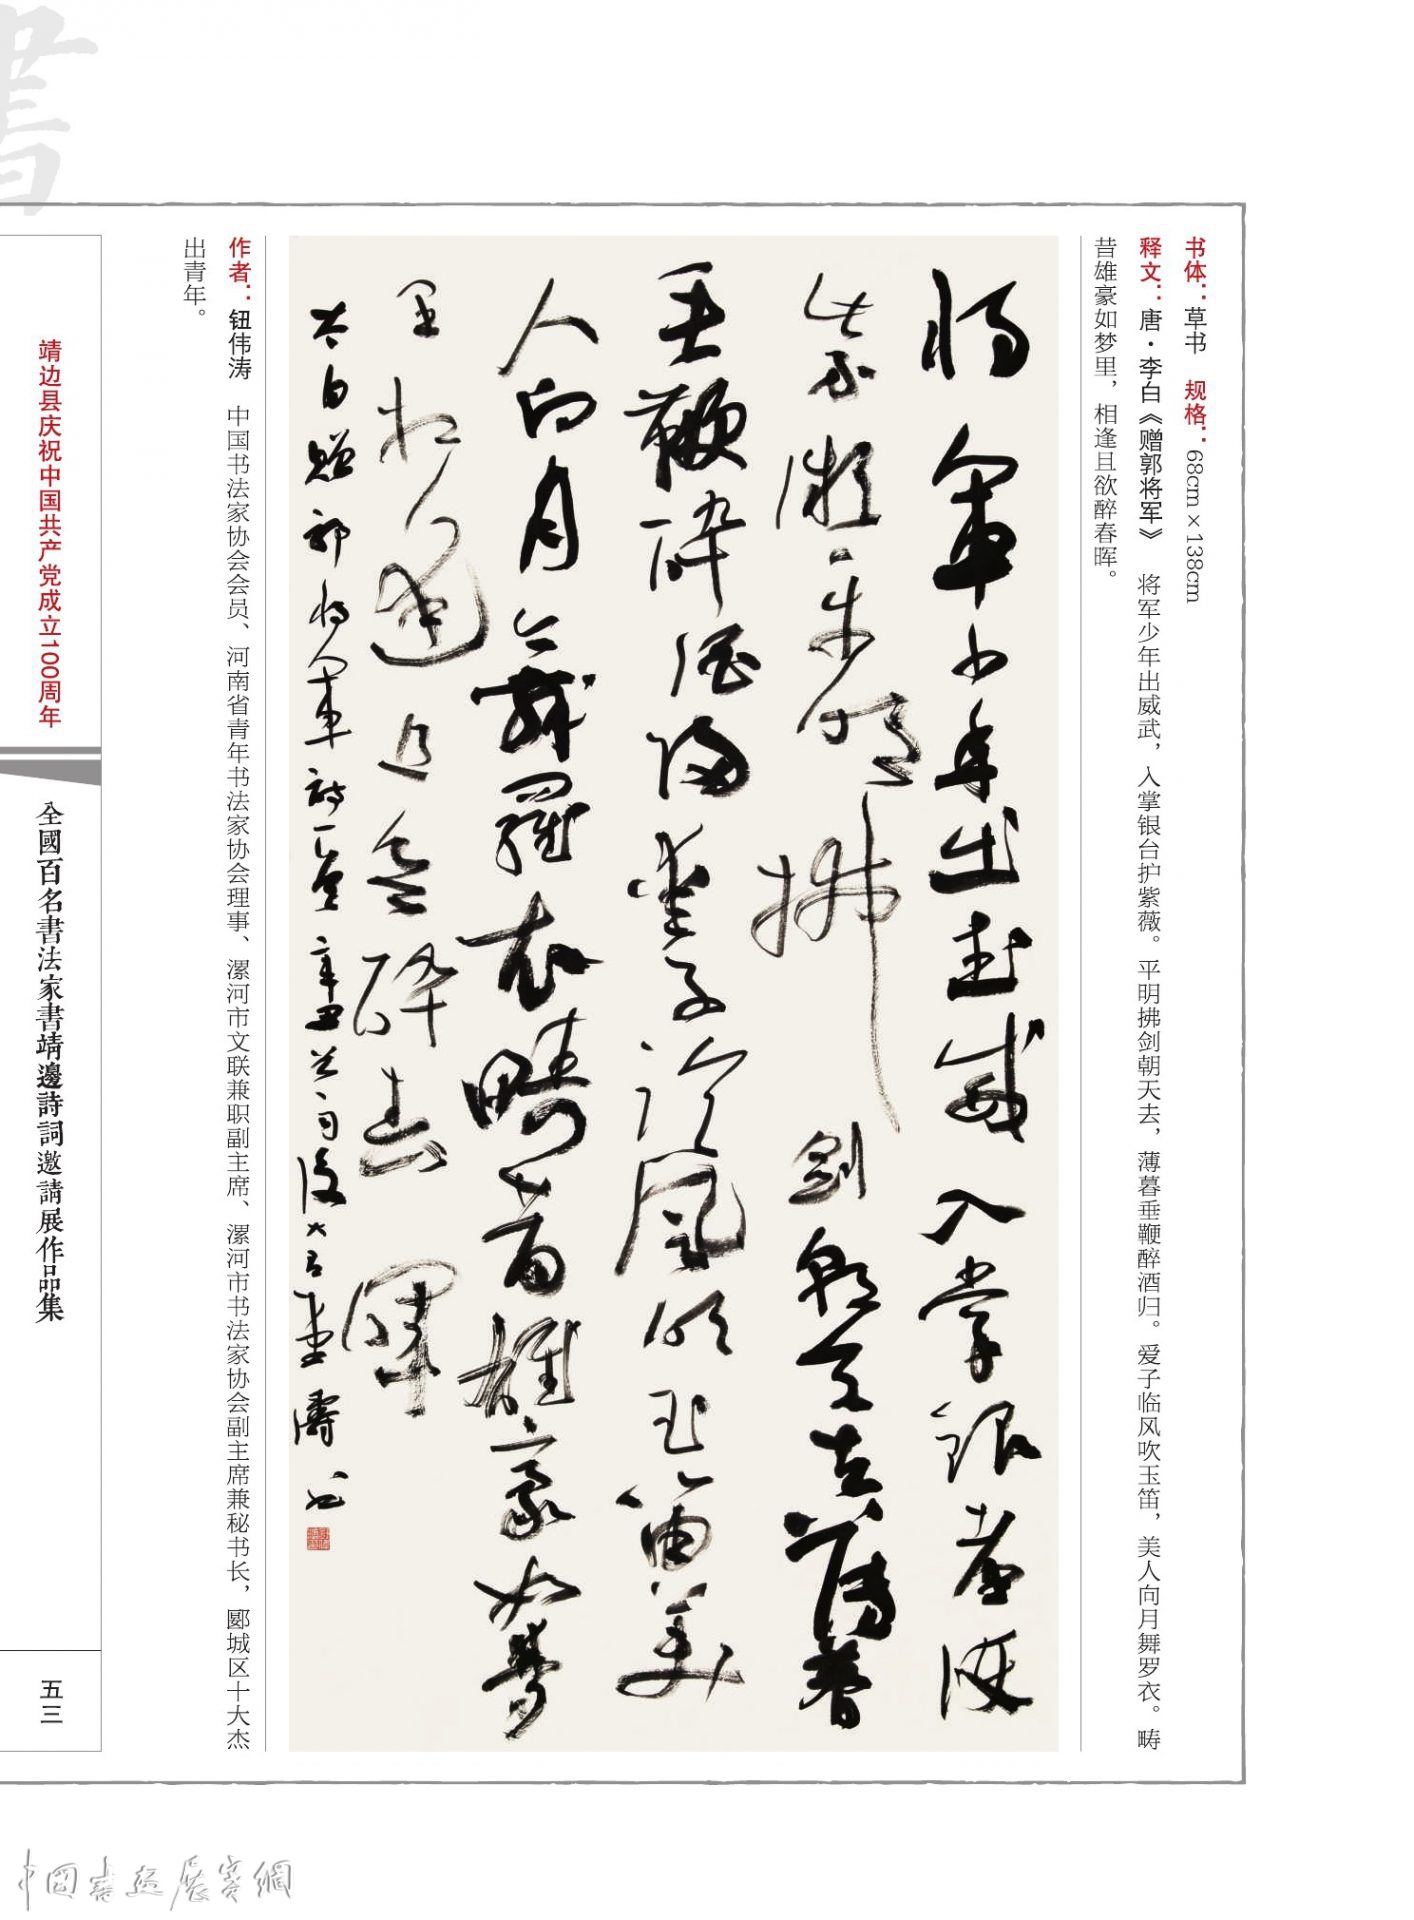 书体：草书 规格：68cm×138cm
释文：唐·李白《赠郭将军》 将军少年出威武，入掌银台护紫薇。平明拂剑朝天去，薄暮垂鞭醉酒归。爱子临风吹玉笛，美人向月舞罗衣。畴
昔雄豪如梦里，相逢且欲醉春晖。
將軍少年出武威入掌銀臺護
紫微平明拂劍朝天去薄暮
垂鞭醉酒歸愛子臨風吹玉笛美
人向月舞羅衣疇昔雄豪如夢
里相逢且欲醉春暉
太白贈郭將軍詩一首辛丑
濤書
作者：钮伟涛 中国书法家协会会员、河南省青年书法家协会理事、漯河市文联兼职副主席、漯河市书法家协会副主席兼秘书长，郾城区十大杰
出青年。
靖边县庆祝中国共产党成立100周年
全國百名書法家書靖邊詩詞邀請展作品集
五三
書
中國書画展賽網